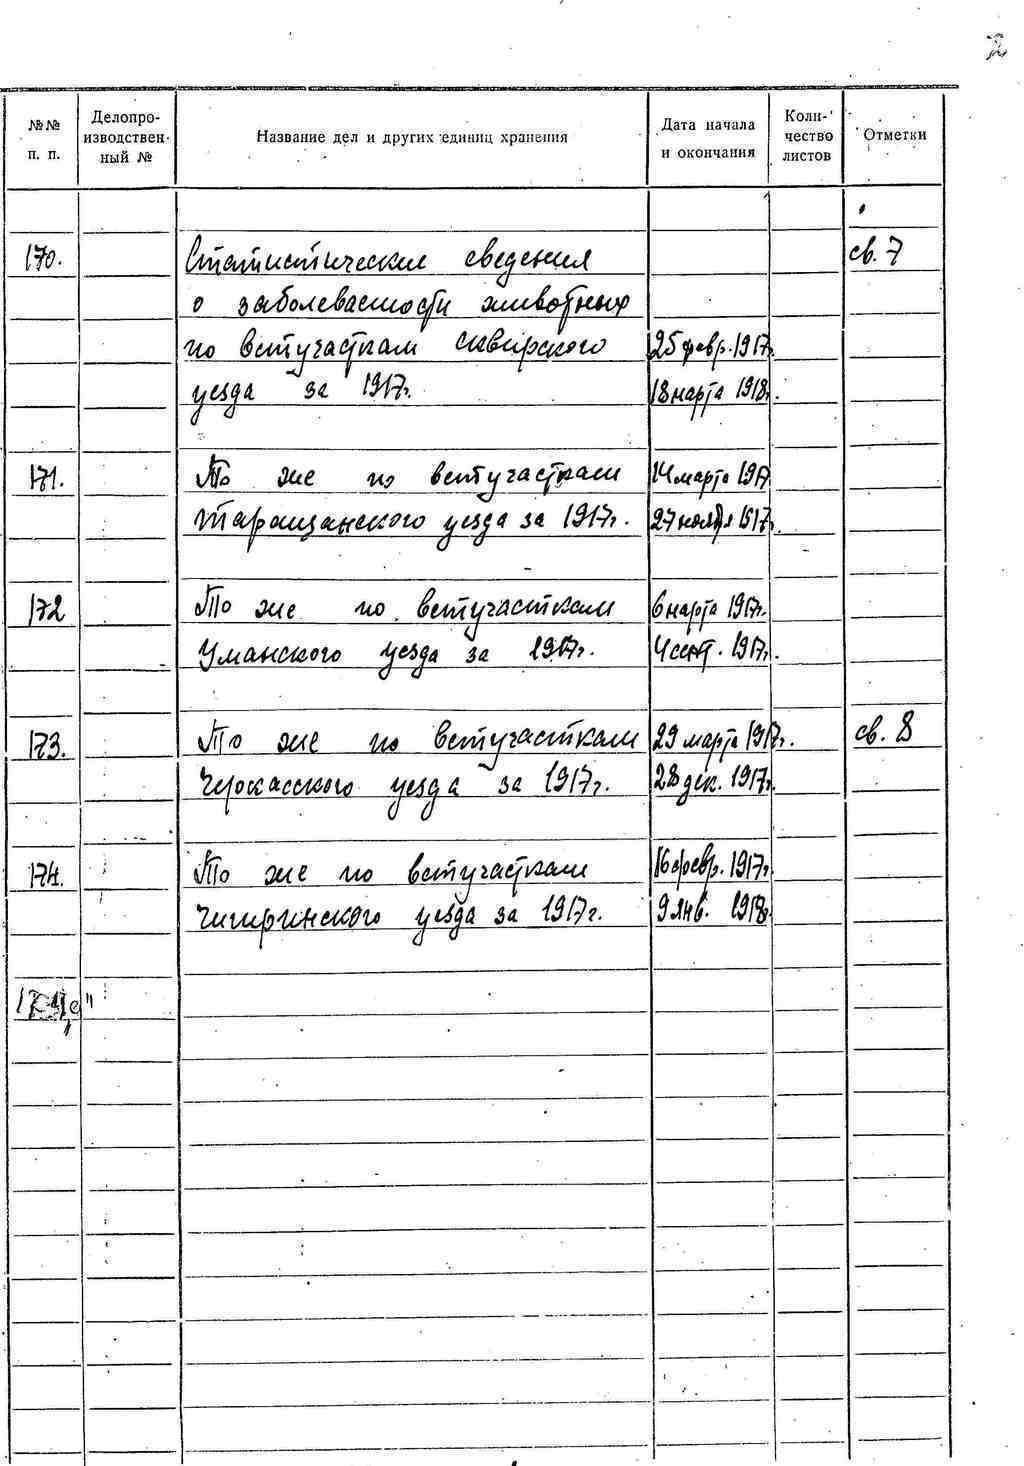 №№ п. п. Делопроизводствен- ный № Название дел и других единиц хранения Дата начала и окончания Коли- чество листов Отметки
170. Статистические сведения св. 7
о заболеваемости животных
по ветучасткам Сквирского 25 февр. 1917г.
уезда за 1917г. 18 марта 1918г.
171. То же по ветучасткам 14 марта 1917
Таращанского уезда за 1917г. 27 ноября 1917г.
172 То же по ветучасткам 6 марта 1917г.
Уманского уезда за 1917г. 4 сент. 1917г.
173. То же по ветучасткам 29 марта 1917г. св. 8
Черкасского уезда за 1917г. 28 дек. 1917г.
174. То же по ветучасткам 16 февр. 1917г.
Чигиринского уезда за 1917г. 9 янв. 1918г.